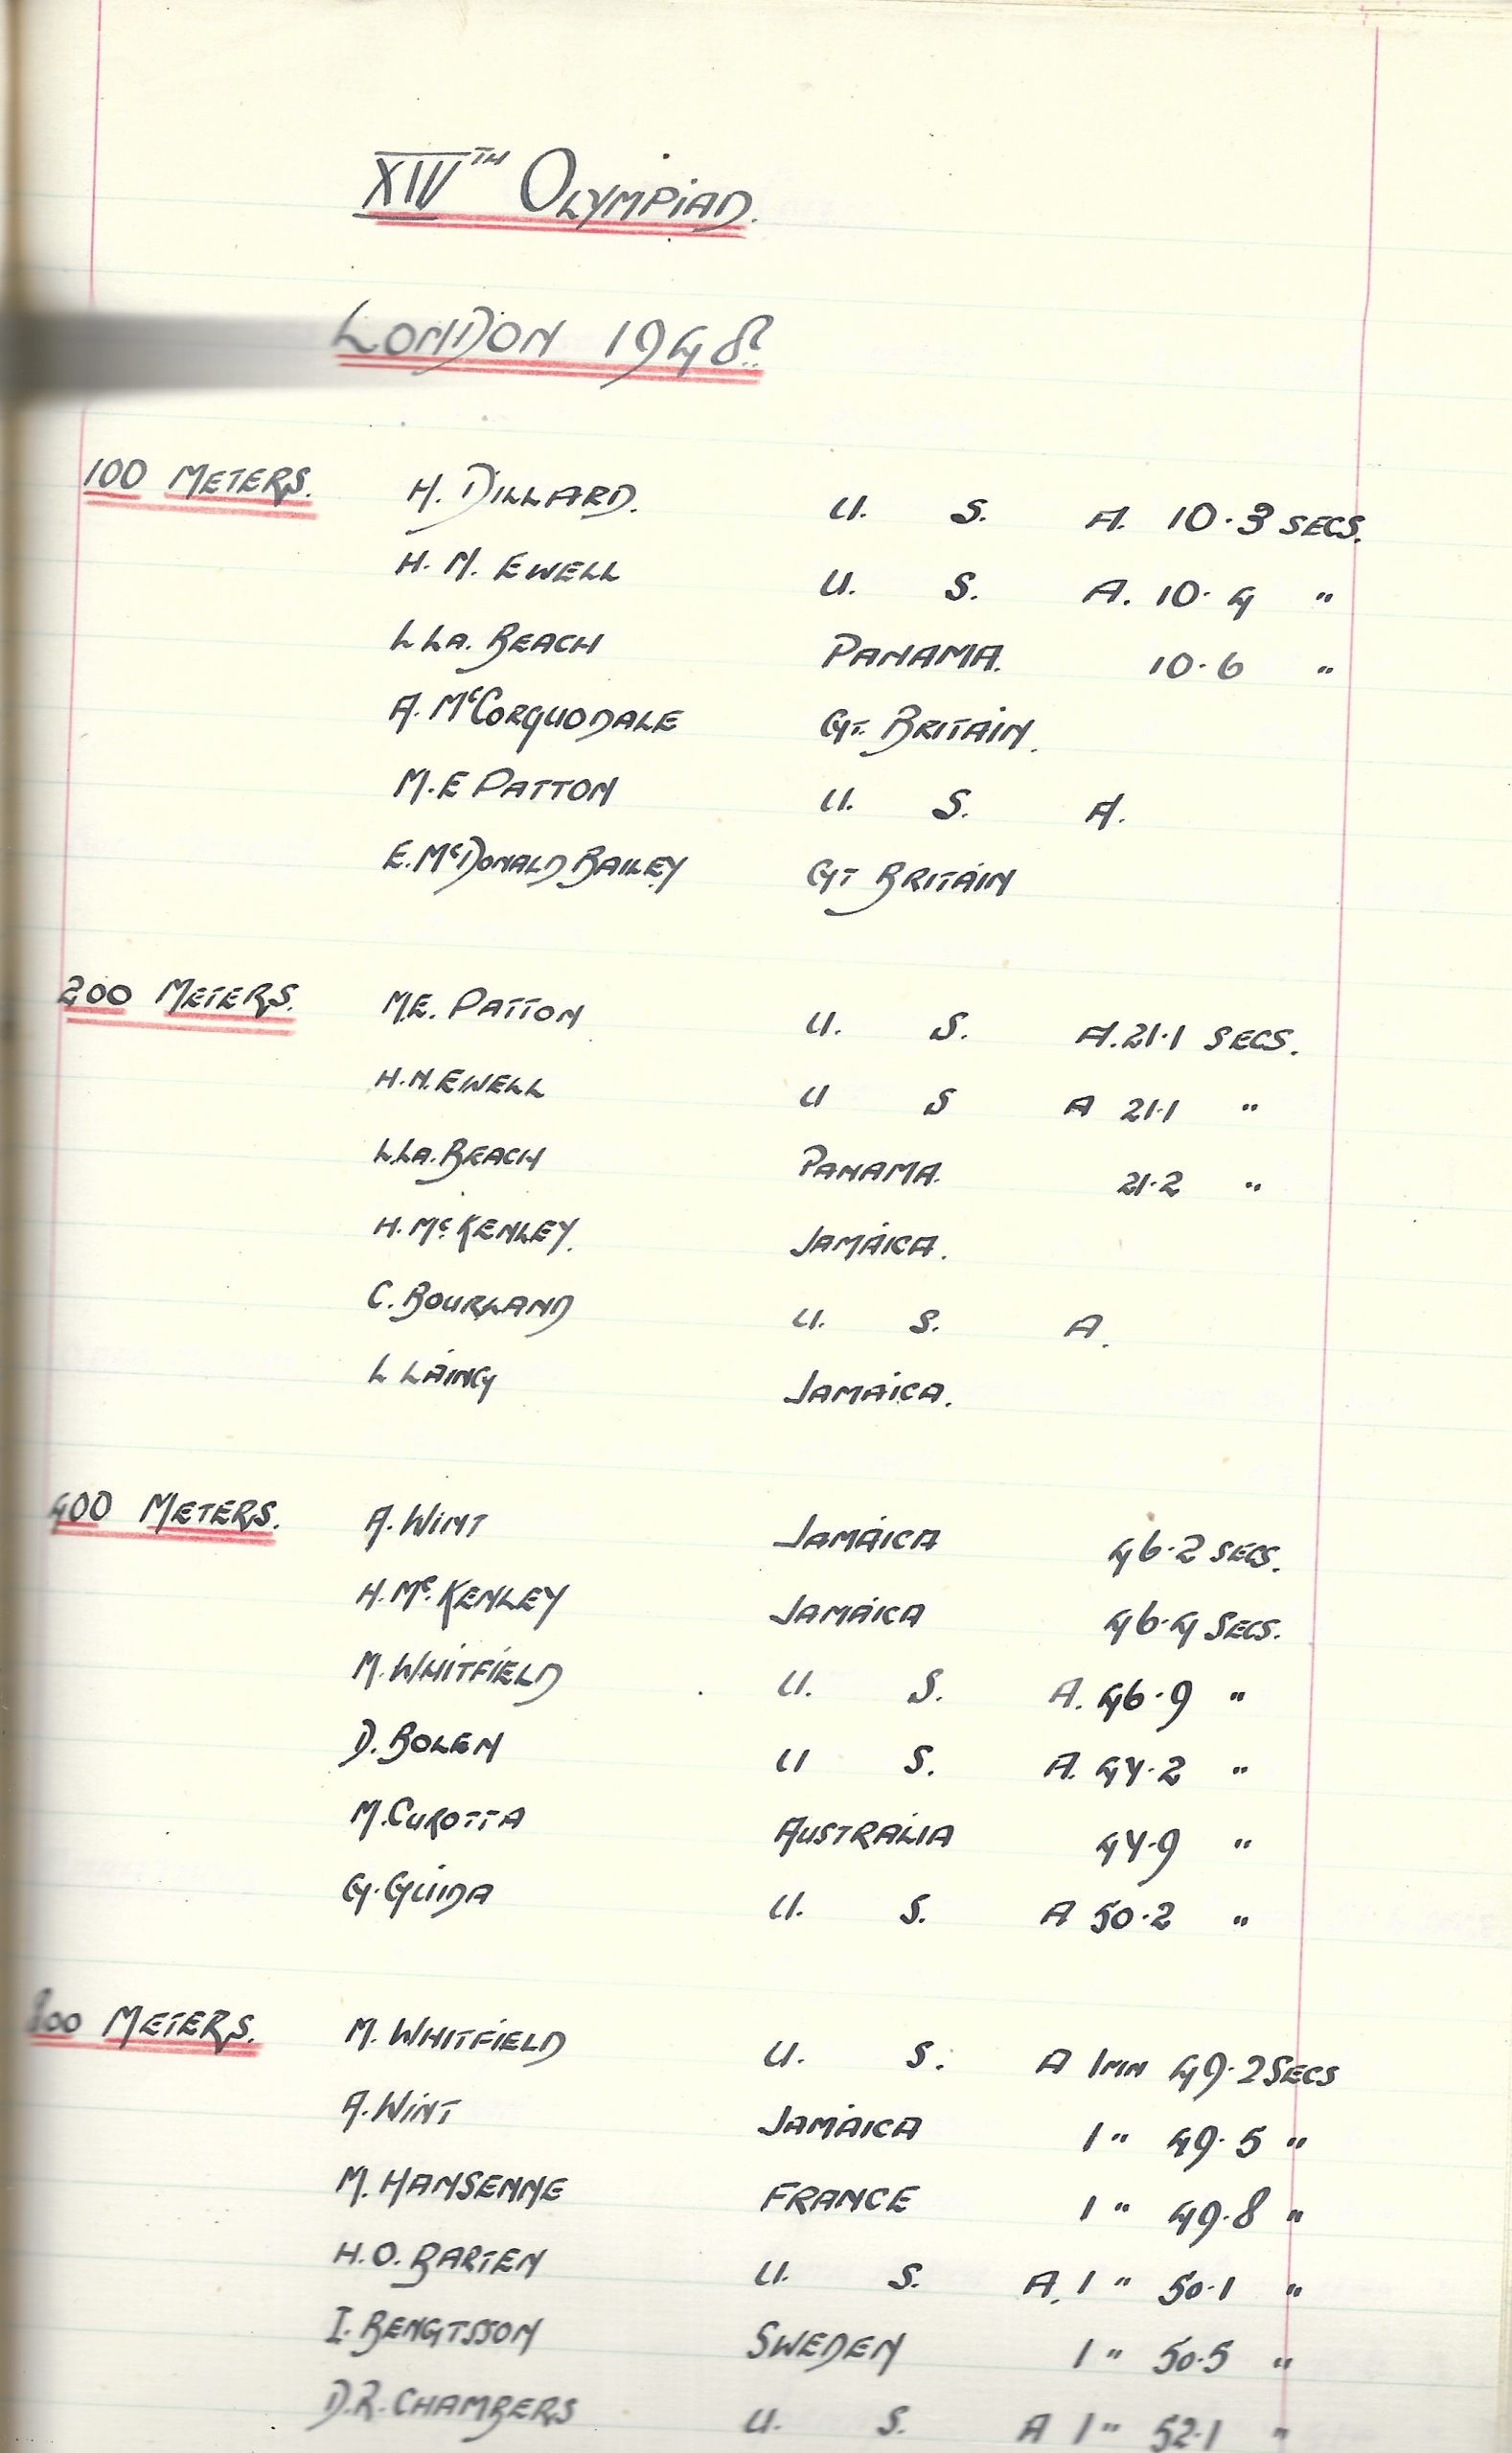 XIVTH OLYMPIAD.
LONDON 1948.
100 METERS. H. DILLARD. U. S. A. 10.3 SECS.
H. N. EWELL U. S. A. 10.4 "
L LA. BEACH PANAMA. 10.6 "
A. McCORQUODALE GT. BRITAIN.
M.E PATTON U. S. A.
E. McDONALD BAILEY GT BRITAIN
200 METERS. M.E. PATTON U. S. A. 21.1 SECS.
H.N. EWELL U S A 21.1 "
L.LA. BEACH PANAMA. 21.2 "
H. Mc KENLEY. JAMAICA.
C. BOURLAND U. S. A.
L LAING JAMAICA.
400 METERS. A. WINT JAMAICA 46.2 SECS.
H. Mc. KENLEY JAMAICA 46.4 SECS.
M. WHITFIELD U. S. A. 46.9 "
D. BOLEN U S. A. 47.2 "
M. CUROTTA AUSTRALIA 47.9 "
G. GUIDA U. S. A 50.2 "
800 METERS. M. WHITFIELD U. S. A 1MN 49.2 SECS
A. WINT JAMAICA 1 " 49.5 "
M. HANSENNE FRANCE 1 " 49.8 "
H.O. BARTEN U. S. A. 1 " 50.1 "
I. BENGTSSON SWEDEN 1 " 50.5 "
D.R. CHAMBERS U. S. A 1 " 52.1 "